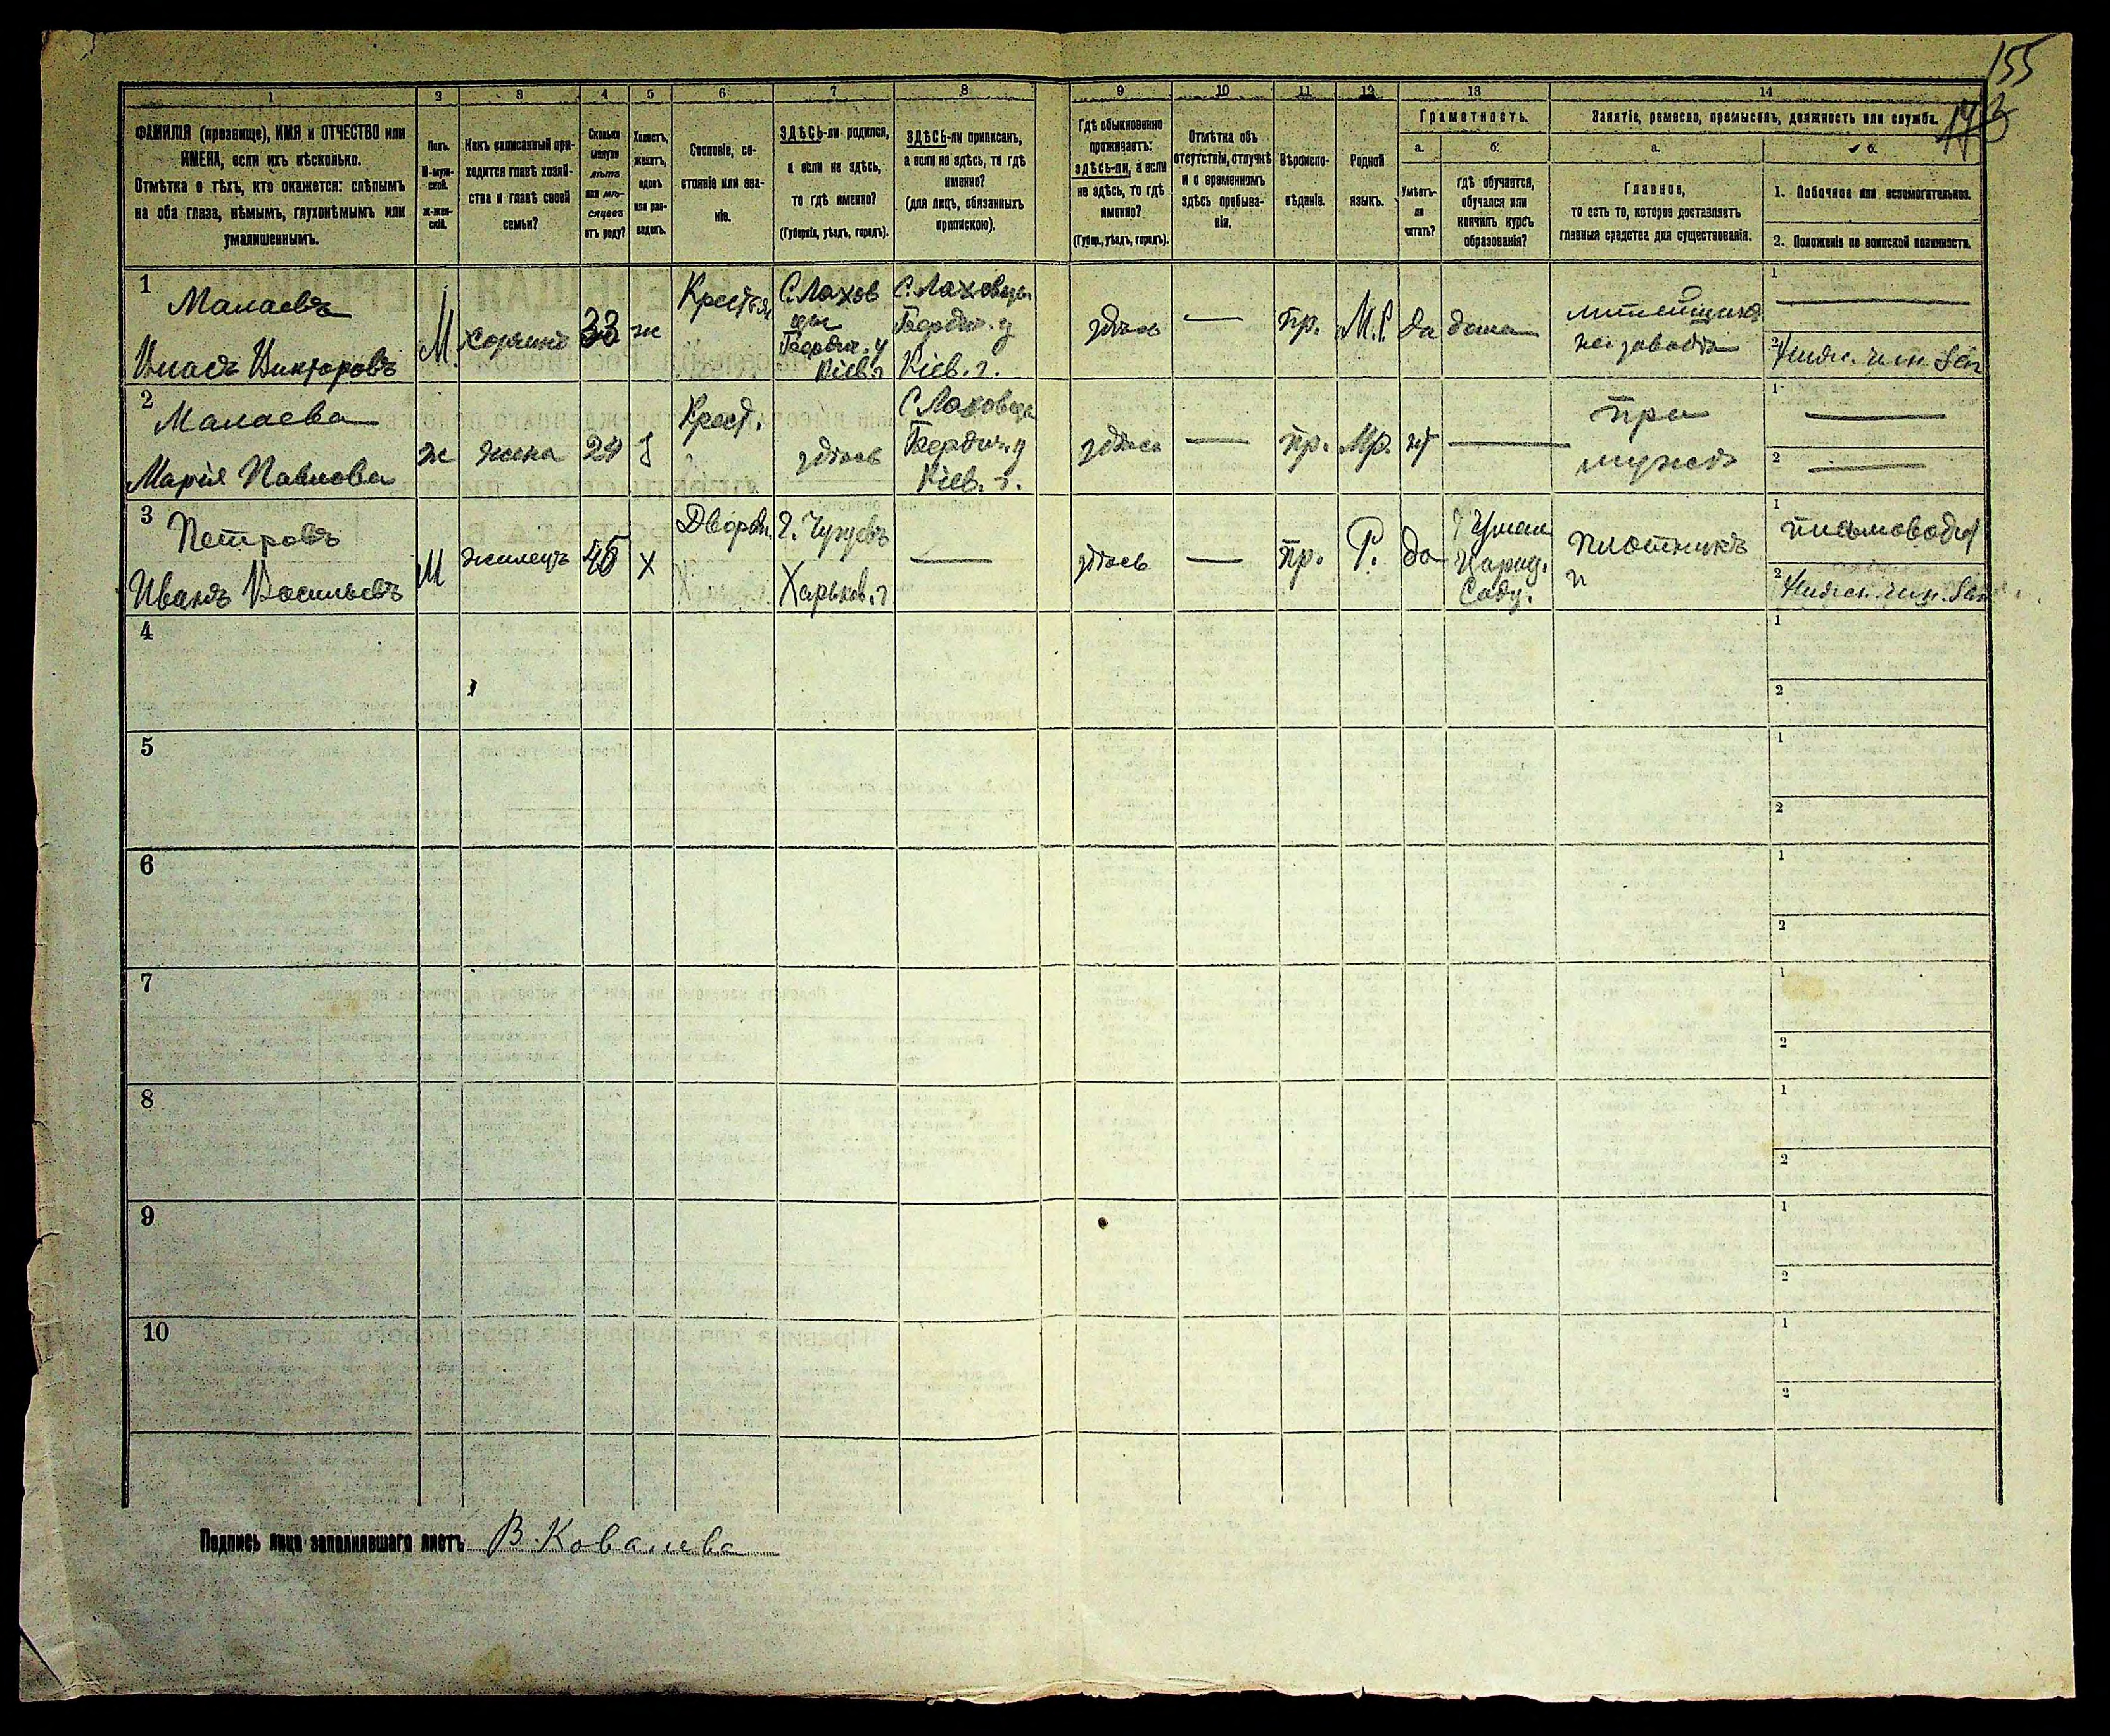 155
1 2 3 4 5 6 7 8 9 10 11 12 13 14
ФАМИЛІЯ (прозвище), ИМЯ и ОТЧЕСТВО или
ИМЕНА, если ихъ нѣсколько.
Отмѣтка о тѣхъ, кто окажется: слѣпымъ
на оба глаза, нѣмымъ, глухонѣмымъ или
умалишеннымъ.
Полъ.
М-муж-
ской.
ж-жен-
скій.
Какъ записанный при-
ходится главѣ хозяй-
ства и главѣ своей
семьи?
Сколько
минуло
лѣтъ
или мѣ-
сяцевъ
отъ роду?
Холостъ,
женатъ,
вдовъ
или раз-
веденъ.
Сословіе, со-
стояніе или зва-
ніе.
ЗДѢСЬ-ли родился,
а если не здѣсь,
то гдѣ именно?
(Губернія, уѣздъ, городъ).
ЗДѢСЬ-ли приписанъ,
а если не здѣсь, то гдѣ
именно?
(для лицъ, обязанныхъ
припискою).
Гдѣ обыкновенно
проживаетъ:
здѣсь-ли, а если
не здѣсь, то гдѣ
именно?
(Губер., уѣздъ, городъ).
Отмѣтка объ
отсутствіи, отлучкѣ
и о временномъ
здѣсь пребыва-
ніи.
Вѣроиспо-
вѣданіе.
Родной
языкъ.
Грамотность.
а.
Умѣетъ-
ли
читать?
б.
гдѣ обучается,
обучался или
кончилъ курсъ
образованія?
Занятіе, ремесло, промыселъ, должность или служба.
а.
Главное,
то есть то, которое доставляетъ
главныя средства для существованія.
б.
1. Побочное или вспомогательное.
2. Положеніе по воинской повинности.
1 Малаевъ
Власъ Викторовъ
М хозяинъ 33 ж
Крестья
С. Лахов
цы
Бердич. у
Кіев. г
С. Лаховцы
Бердич. у
Кіев. г.
здѣсь — пр. М.Р. да дома
литейщикъ
на заводѣ
1 —
2 Нижн. чин Зап
2 Малаева
Марія Павлова
ж жена 24 з
Крест.
здѣсь
С Лаховцы
Бердич. у
Кіев. г.
здѣсь — пр. Мр. нт —
при
мужѣ
1 —
2 —
3 Петровъ
Иванъ Васильевъ
М жилецъ 45 х
Дворян.
г. Чугуевъ
Харьков. г
—
здѣсь — пр. Р. да
Уман
Саду.
плотникъ
1 письмовод
2 Нижн. чин. Зап
4 1
2
5 1
2
6 1
2
7 1
2
8 1
2
9 1
2
10 1
2
Подпись лица заполнявшаго листъ В. Ковалева